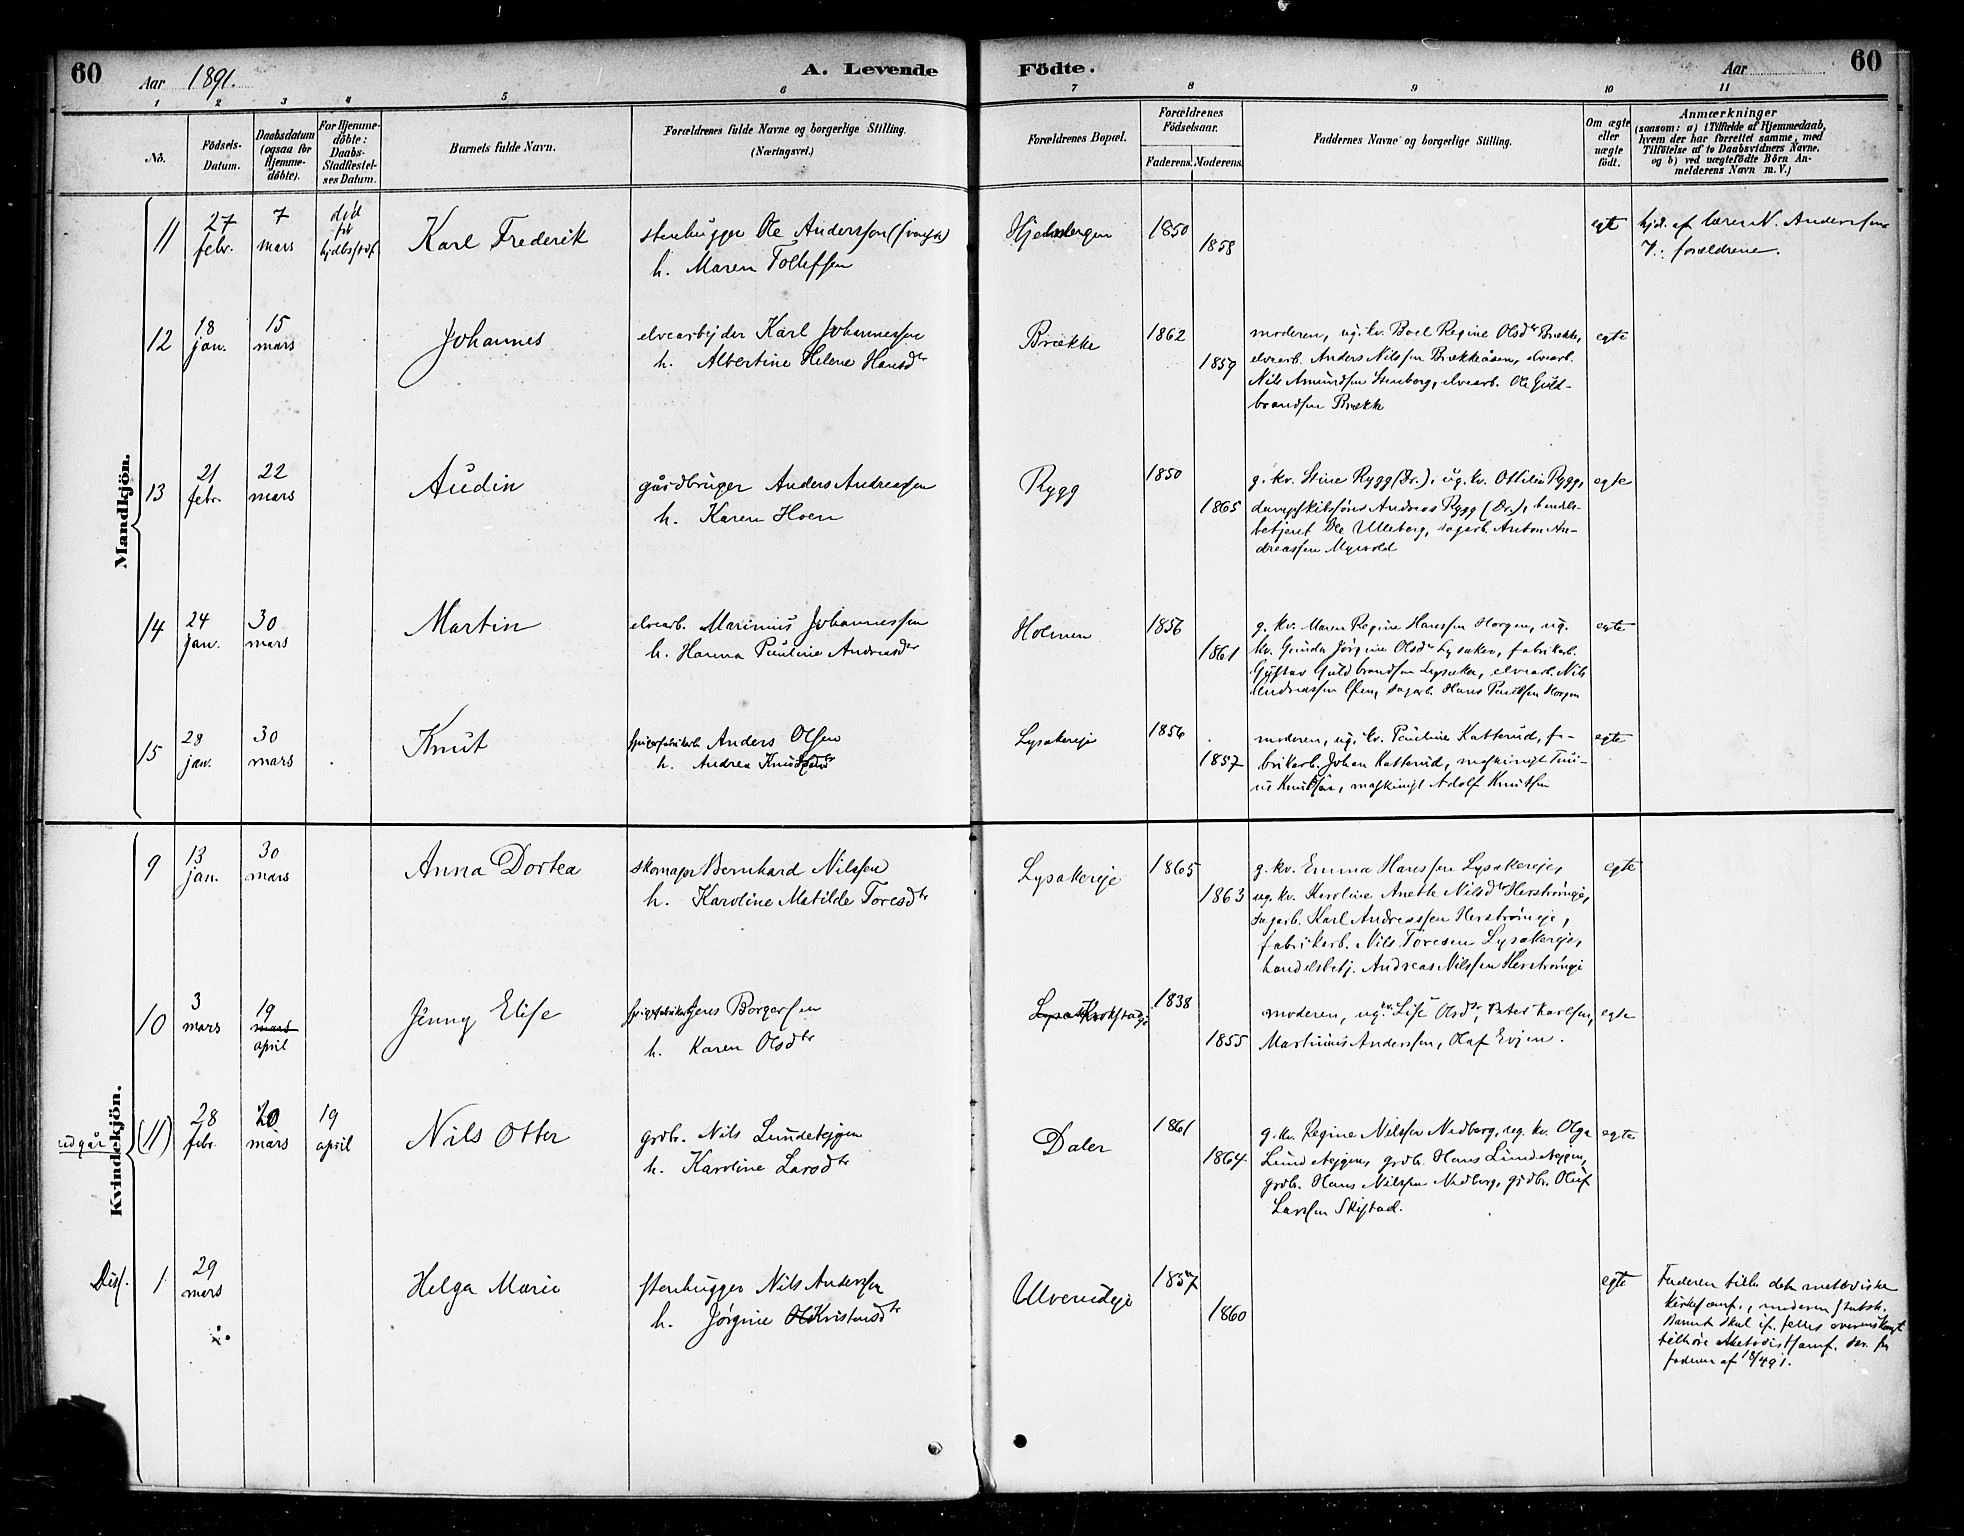 60
Aar 1891.
A. Levende
Födte.
Aar
60
1 2 3 4 5 6 7 8 9 10 11
No.
Födsels-
Datum.
Daabsdatum
(ogsaa for
Hjemme-
döbte).
For Hjemme-
döbte:
Daabs-
Stadfæstel-
ses Datum.
Barnets fulde Navn.
Forældrenes fulde Navne og borgerlige Stilling.
(Næringsvei.)
Forældrenes Bopæl.
Forældrenes
Födselsaar.
Faderens.
Moderens.
Faddernes Navne og borgerlige Stilling.
Om ægte
eller
uægte
födt.
Anmærkninger
(saasom: a) i Tilfælde af Hjemmedaab,
hvem der har forrettet samme, med
Tilföielse af to Daabsvidners Navne.
og b) ved uægtefödte Börn An-
melderens Navn m. V.)
Mandkjön.
11
27
febr.
7
mars
död
før
hjdbsstdf
Karl Frederik
stenhugger Ole Anderssen (svensk)
h. Maren Tollefsen
Hjelmbergen
1850
1858
egte
hjd. af lærer N. Anderssen
V.: forældrene.
12
18
jan.
15
mars
Johannes
elvearbejder Karl Johannessen
h. Albertine Helene Hansdtr
Brække
1862
1859
moderen, ug. kv. Boel Regine Olsdtr Brække,
elvearb. Anders Nilssen Brækkeåsen, elvearb.
Nils Amundsen Stenborg, elvearb. Ole Guld-
brandsen Brække
egte
13
21
febr.
22
mars
Audin
gårdbruger Anders Andreassen
h. Karen Hoen
Rygg
1850
1865
g. kv. Stine Rygg (Dr.), ug. kv. Ottilie Rygg,
dampskibsförer Andreas Rygg (Dr.),
betjent Ole Ulleberg, sagarb. Anton An-
dreassen Myrvold
egte
14
24
jan.
30
mars
Martin
elvearb. Marinius Johannessen
h. Hanna Pauline Andreasdtr
Holmen
1856
1861
g. kv. Maren Regine Hanssen Horgen, ug.
kv. Gunda Jørgine Olsdtr Lysaker, fabrikarb.
Gustav Guldbrandsen Lysaker, elvearb. Nils
Andreassen, sagarb. Hans Paulsen Horgen
egte
15
28
jan.
30
mars
Knut
spigerfabrikarb. Anders Olsen
h. Andrea
Lysakereje
1856
1857
moderen, ug. kv. Pauline Katterud, fa-
brikarb. Johan Katterud, maskinist
Knutsen, maskinist Adolf Knutsen
egte
Kvindekjön.
9
13
jan.
30
mars
Anna Dortea
skomager Bernhard Nilssen
h. Karoline Matilde Toresdtr
Lysakereje
1865
1863
g. kv. Emma Hanssen Lysakereje,
ug. kv. Karoline Aneth Nilsdtr Herstrømeje,
sagarb. Karl Andreassen Herstrømeje,
fabrikarb. Nils Toresen Lysakereje,
handelsbetj. Andreas Nilssen Herstrømeje
egte
10
3
mars
19
mars
april
Jenny Elise
spigerfabrikarb. Jens Borgersen
h. Karen Olsdtr
Krokstadeje
1838
1855
moderen, ug. kv. Lise Olsdtr, Peter Karlsen,
Martinius Anderssen, Olaf Evjen.
egte
udgår
(11)
28
febr.
20
mars
19
april
Nils Otter
grdbr. Nils Lundetejgen
h. Karoline Larsdtr
Daler
1861
1864.
g. kv. Regine Nilssen Nedberg, ug. kv. Olga
Lundetejgen, grdbr. Hans Lundetejgen,
grdbr. Hans Nilssen Nedberg, grdbr. Oluf
Larssen Skistad.
egte
Diss.
1
29
mars
Helga Marie
stenhugger Nils Anderssen
h. Jørgine Kristensdtr
Ulverudeje
1857
1860
egte
Faderen tilh. det metodistiske
kirkesamf., moderen statsk.
Barnet skal if. fælles overenskomst
tilhøre Metodistsamf.
faderen af 18/4 91.